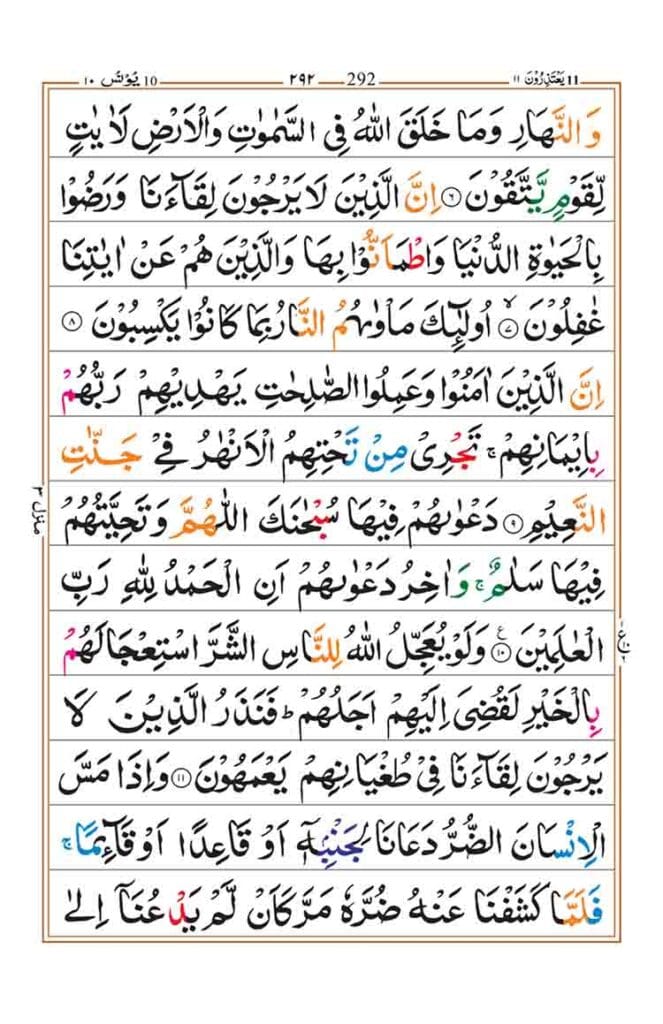 11 يَعْتَذِرُوْنَ ١١ 292 ٢٩٢ 10 يُوْنُسَ ١٠
وَالنَّهَارِ وَمَا خَلَقَ اللّٰهُ فِى السَّمٰوٰتِ وَالْاَرْضِ لَاٰيٰتٍ
لِّقَوْمٍ يَّتَّقُوْنَ ۝٦ اِنَّ الَّذِيْنَ لَا يَرْجُوْنَ لِقَآءَنَا وَرَضُوْا
بِالْحَيٰوةِ الدُّنْيَا وَاطْمَاَنُّوْا بِهَا وَالَّذِيْنَ هُمْ عَنْ اٰيٰتِنَا
غٰفِلُوْنَ ۝٧ۙ اُولٰٓئِكَ مَاْوٰىهُمُ النَّارُ بِمَا كَانُوْا يَكْسِبُوْنَ ۝٨
اِنَّ الَّذِيْنَ اٰمَنُوْا وَعَمِلُوا الصّٰلِحٰتِ يَهْدِيْهِمْ رَبُّهُمْ
بِاِيْمَانِهِمْ ۚ تَجْرِىْ مِنْ تَحْتِهِمُ الْاَنْهٰرُ فِىْ جَنّٰتِ
النَّعِيْمِ ۝٩ دَعْوٰىهُمْ فِيْهَا سُبْحٰنَكَ اللّٰهُمَّ وَتَحِيَّتُهُمْ
فِيْهَا سَلٰمٌ ۚ وَاٰخِرُ دَعْوٰىهُمْ اَنِ الْحَمْدُ لِلّٰهِ رَبِّ
الْعٰلَمِيْنَ ۝١٠ ع وَلَوْ يُعَجِّلُ اللّٰهُ لِلنَّاسِ الشَّرَّ اسْتِعْجَالَهُمْ
بِالْخَيْرِ لَقُضِىَ اِلَيْهِمْ اَجَلُهُمْ ؕ فَنَذَرُ الَّذِيْنَ لَا
يَرْجُوْنَ لِقَآءَنَا فِىْ طُغْيَانِهِمْ يَعْمَهُوْنَ ۝١١ وَاِذَا مَسَّ
الْاِنْسَانَ الضُّرُّ دَعَانَا لِجَنْۢبِهٖۤ اَوْ قَاعِدًا اَوْ قَآئِمًا ۚ
فَلَمَّا كَشَفْنَا عَنْهُ ضُرَّهٗ مَرَّ كَاَنْ لَّمْ يَدْعُنَاۤ اِلٰى
منزل ٣